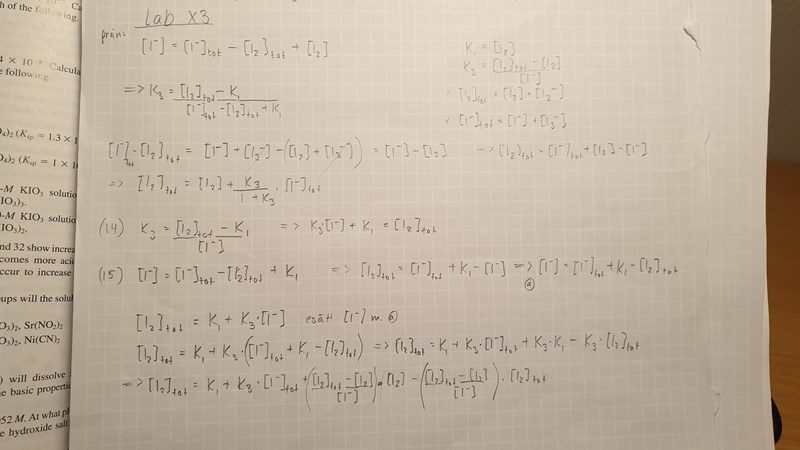 h of the following.
4 × 10
Calcula
e following.
O₄)₂ (Ksp = 1.3 × 1
O₄)₂ (Ksp = 1 × 1
-M KIO₃ solutio
IO₃)₃.
-M KIO₃ solutio
IO₃)₂.
nd 32 show increa
comes more acid
ccur to increase
ups will the solu
O₃)₂, Sr(NO₂)₂
O₃)₂, Ni(CN)₂
) will dissolve
e basic properti
052 M. At what p
e hydroxide salt
Lab X3
[I⁻] = [I⁻]tot − [I₂]tot + [I₂]
K₁ = [I₂]
K₃ = [I₂]tot − [I₂] / [I⁻]
=> K₃ = [I₂]tot − K₁ / [I⁻]tot − [I₂]tot + K₁
√ [I₂]tot = [I₂] + [I₃⁻]
√ [I⁻]tot = [I⁻] + [I₃⁻]
[I⁻]tot − [I₂]tot = [I⁻] + [I₃⁻] − ([I₂] + [I₃⁻]) = [I⁻] − [I₂] → [I₂]tot = [I⁻]tot + [I₂] − [I⁻]
=> [I₂]tot = [I₂] + K₃ / 1 + K₃ · [I⁻]tot
(14) K₃ = [I₂]tot − K₁ / [I⁻] => K₃·[I⁻] + K₁ = [I₂]tot
(15) [I⁻] = [I⁻]tot − [I₂]tot + K₁ => [I₂]tot = [I⁻]tot + K₁ − [I⁻] => [I⁻] = [I⁻]tot + K₁ − [I₂]tot
[I₂]tot = K₁ + K₃·[I⁻] [I⁻] m.
[I₂]tot = K₁ + K₃·([I⁻]tot + K₁ − [I₂]tot) => [I₂]tot = K₁ + K₃·[I⁻]tot + K₃·K₁ − K₃·[I₂]tot
=> [I₂]tot = K₁ + K₃·[I⁻]tot + ([I₂]tot − [I₂] / [I⁻])·[I₂] − ([I₂]tot − [I₂] / [I⁻])·[I₂]tot